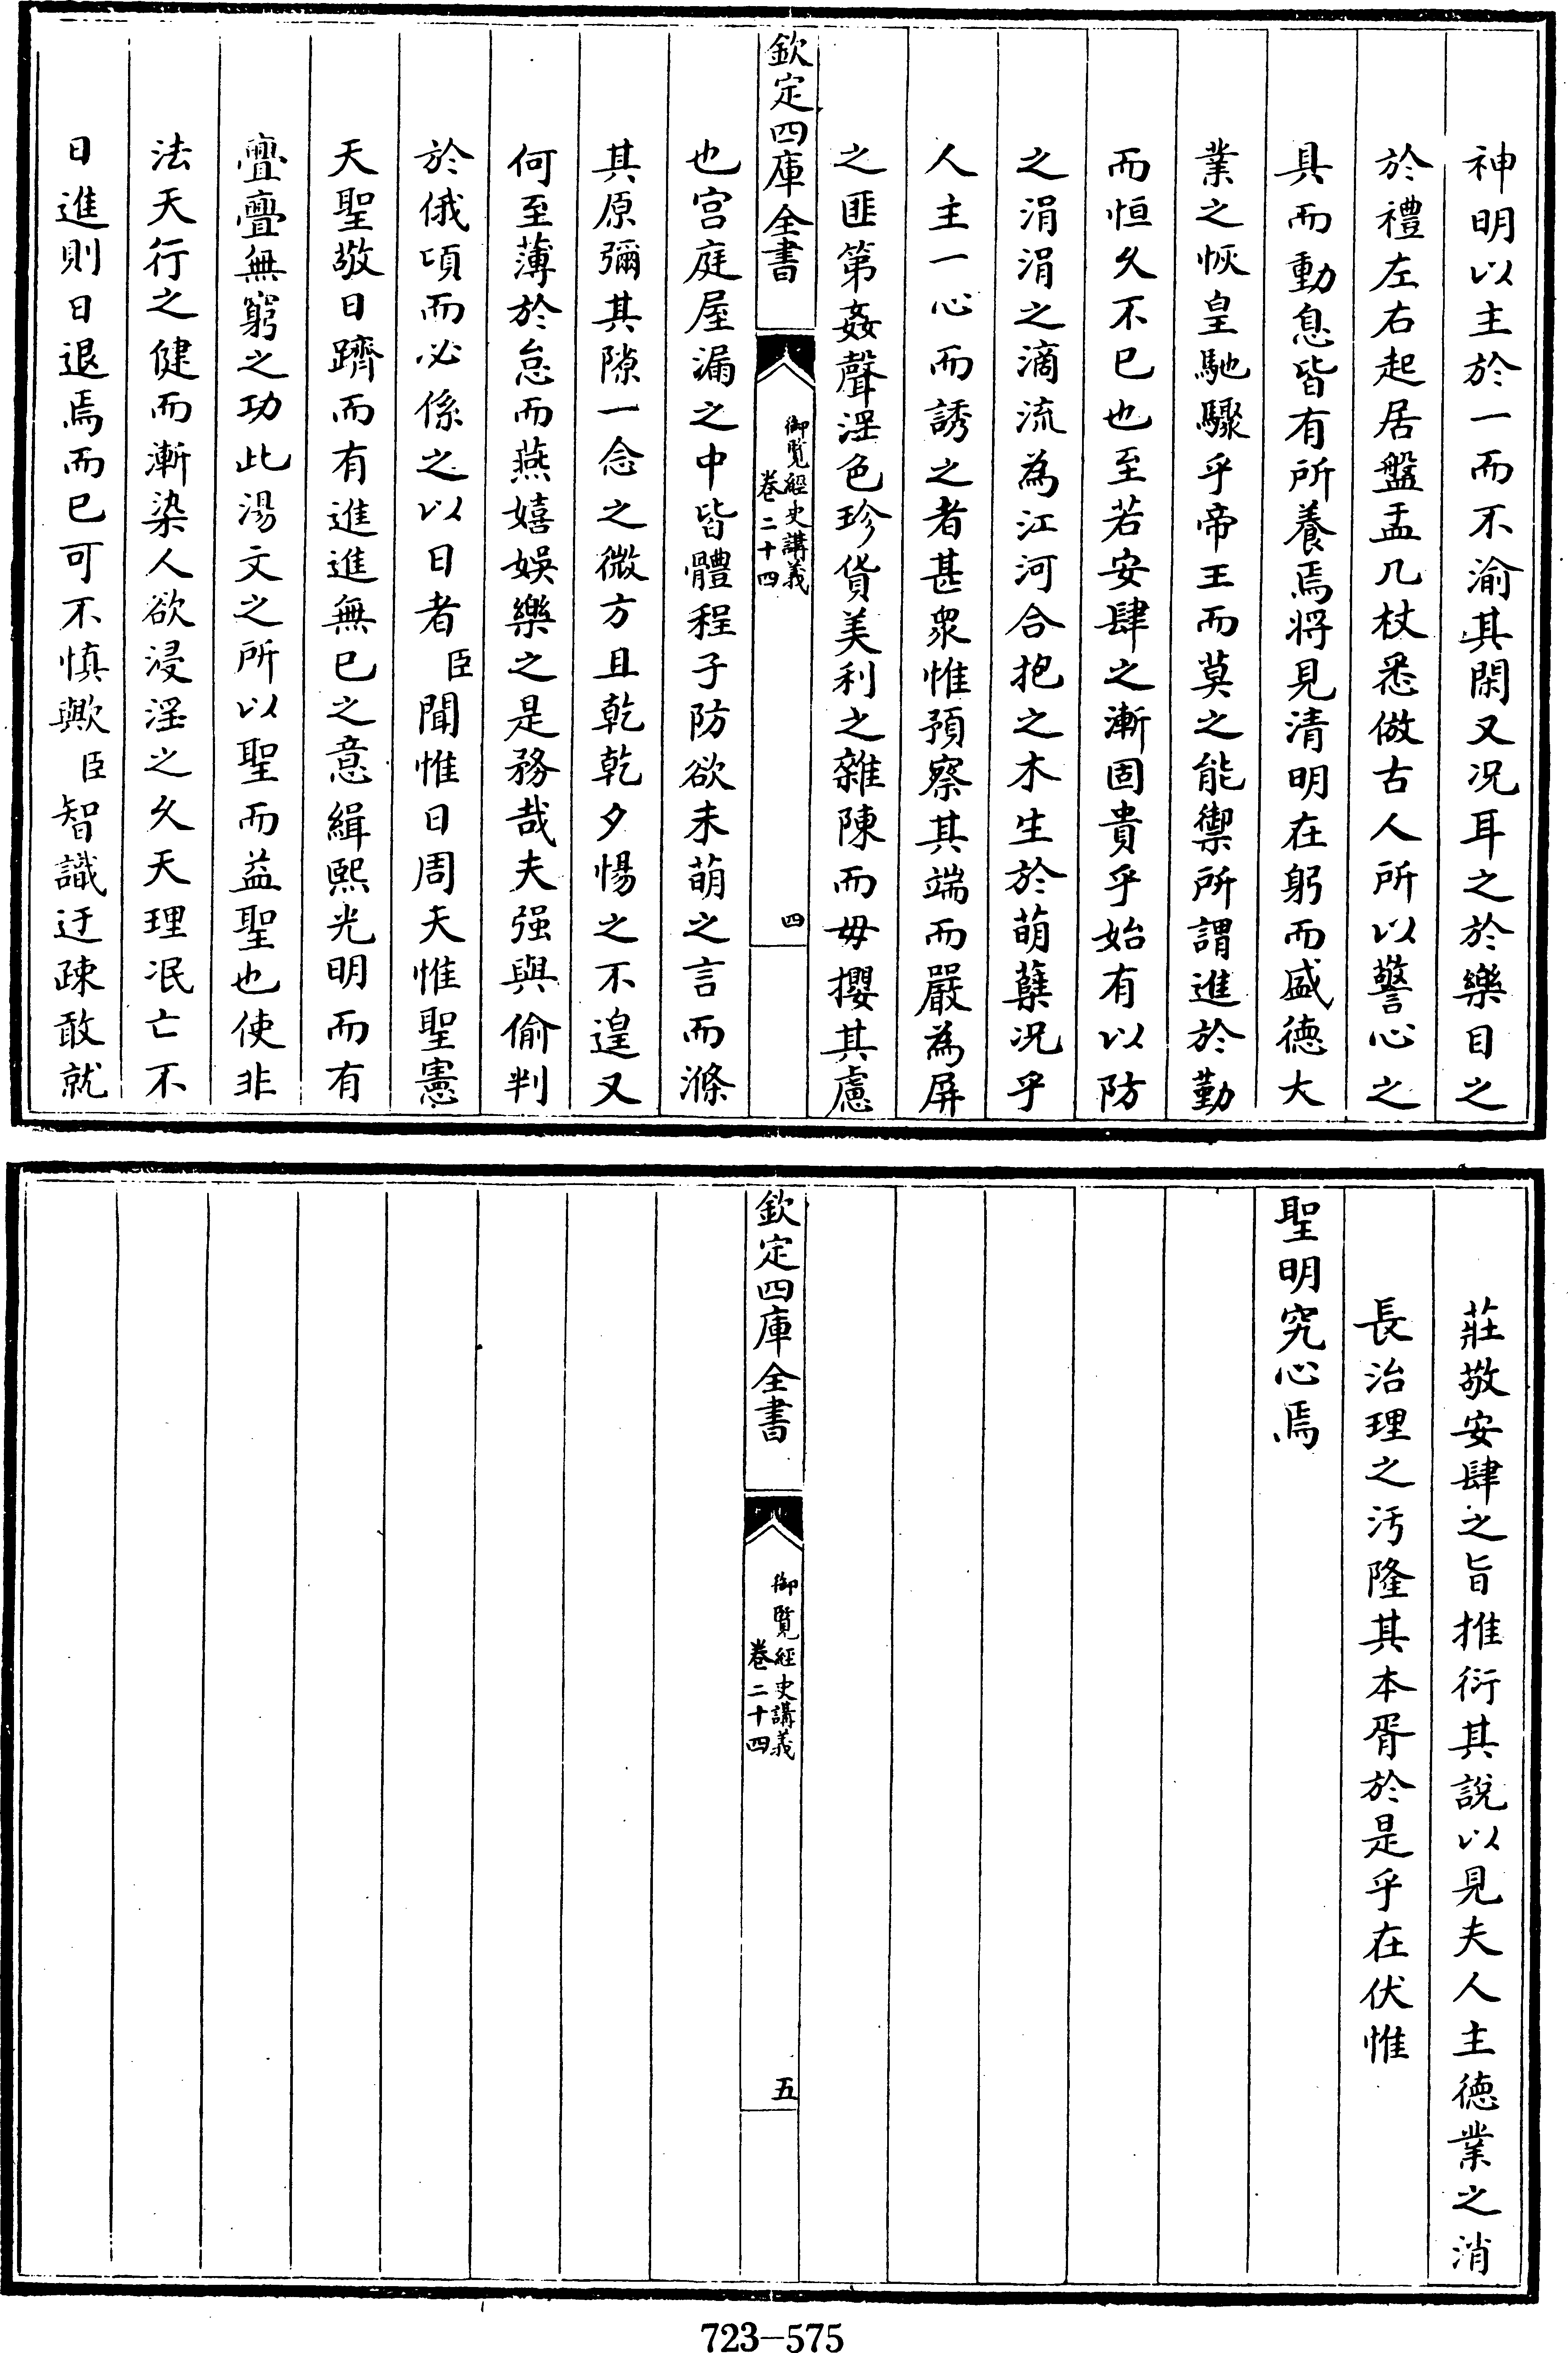 神明以主於一而不渝其閑又况耳之於樂目之
於禮左右起居盤盂几杖悉倣古人所以警心之
具而動息皆有所養焉將見清明在躬而盛徳大
業之恢皇馳驟乎帝王而莫之能禦所謂進於勤
而恒久不已也至若安肆之漸固貴乎始有以防
之涓涓之滴流為江河合抱之木生於萌蘖况乎
人主一心而誘之者甚衆惟預察其端而嚴為屏
之匪第姦聲淫色珍貨美利之雜陳而毋攖其慮
欽定四庫全書
御覽經史講義
卷二十四
四
也宫庭屋漏之中皆體程子防欲未萌之言而滌
其原彌其隙一念之微方且乾乾夕惕之不遑又
何至薄於怠而燕嬉娛樂之是務哉夫强與偷判
於俄頃而必係之以日者臣聞惟日周天惟聖憲
天聖敬日躋而有進進無已之意緝熙光明而有
亹亹無窮之功此湯文之所以聖而益聖也使非
法天行之健而漸染人欲浸淫之久天理泯亡不
日進則日退焉而已可不慎歟臣智識迂疎敢就
莊敬安肆之旨推衍其說以見夫人主徳業之消
長治理之汚隆其本胥於是乎在伏惟
聖明究心焉
欽定四庫全書
御覽經史講義
卷二十四
五
723-575